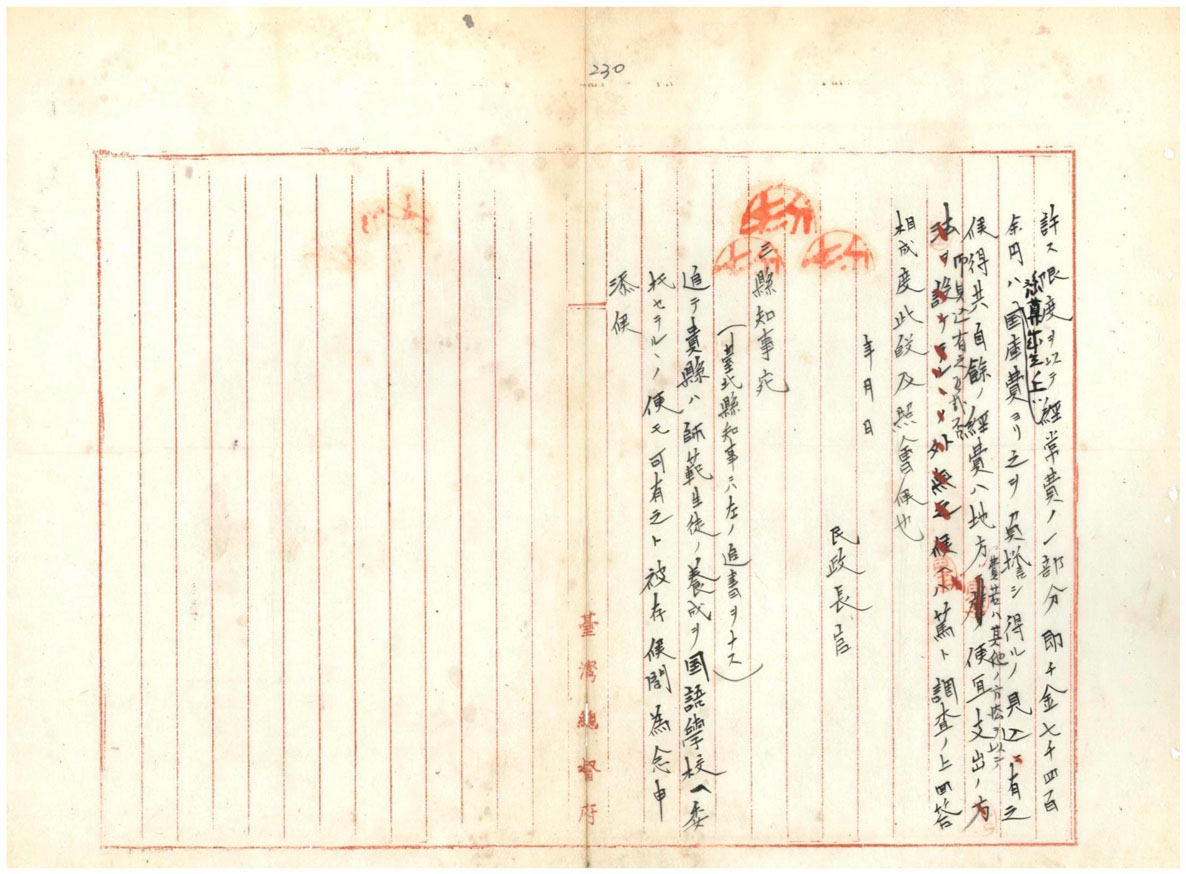 230
許ス限度ヲ以テ経常費ノ一部分即チ金七千四百
余円ハ国庫費ヨリ之ヲ負擔シ得ルノ見込ニ有之
候得共自餘ノ經費ハ地方費若ハ其他ノ方法ヲ以テ便宜支出ノ方
法ヲ設ケラルヽノ外無之候ハ篤ト調査ノ上回答
御見込有之候哉否
相成度此段及照會候也
年月日
民政長官
三縣知事宛
(臺北縣知事ニハ左ノ追書ヲナス)
追テ貴縣ハ師範生徒ノ養成ヲ国語學校ヘ委
托セラルヽノ便モ可有之ト被存候間為念申
添候
臺灣總督府